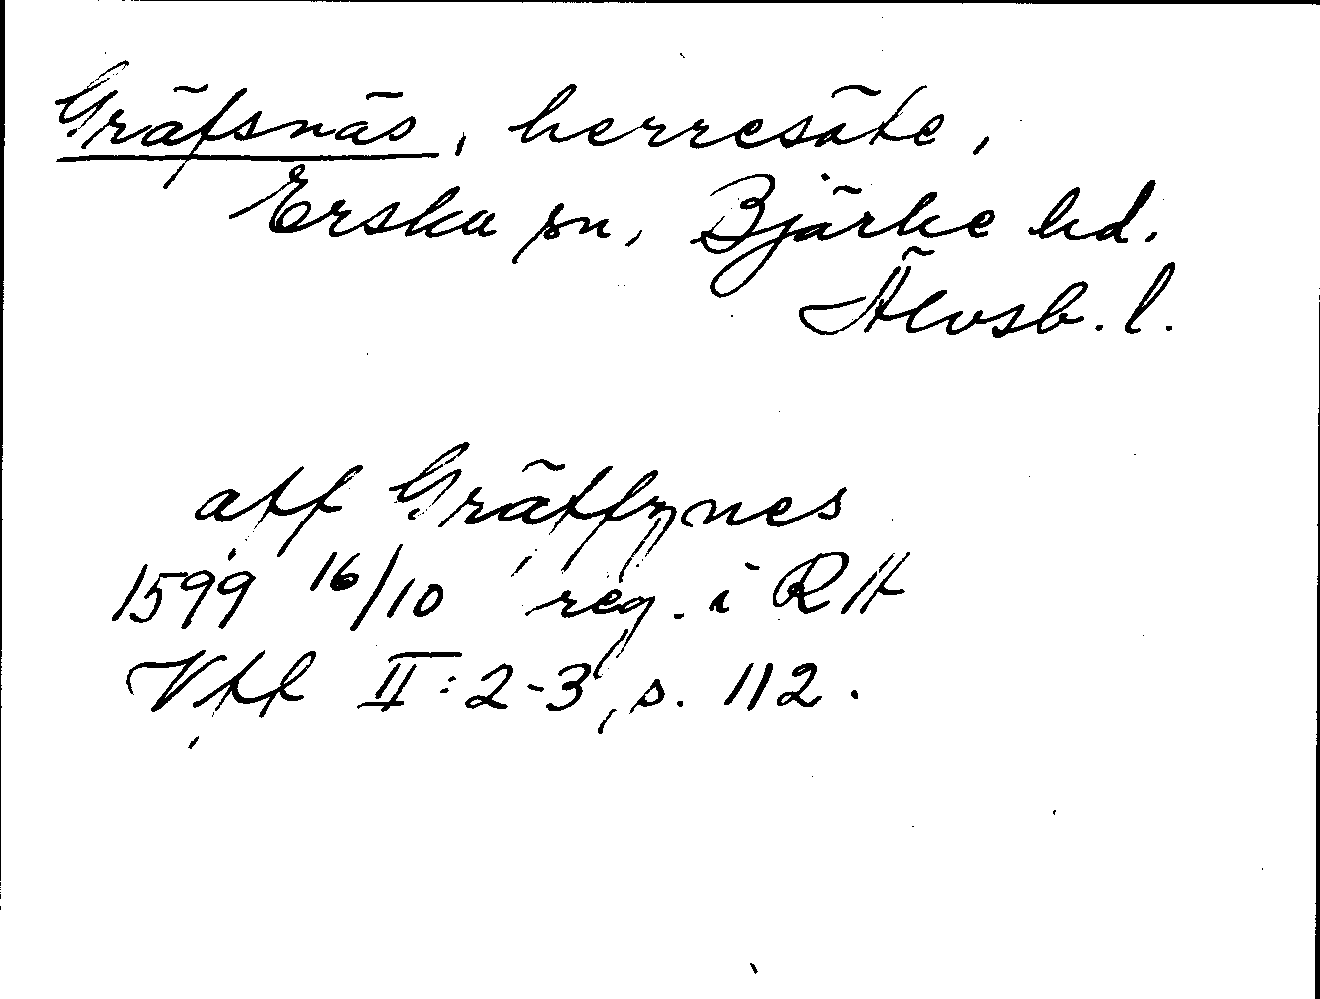 Gräfsnäs, herresäte,
Erska sn, Bjärke hd.
Älvsb. l.
aff Gräffznes
1599 16/10 reg. i RA
Vff II:2-3, s. 112.